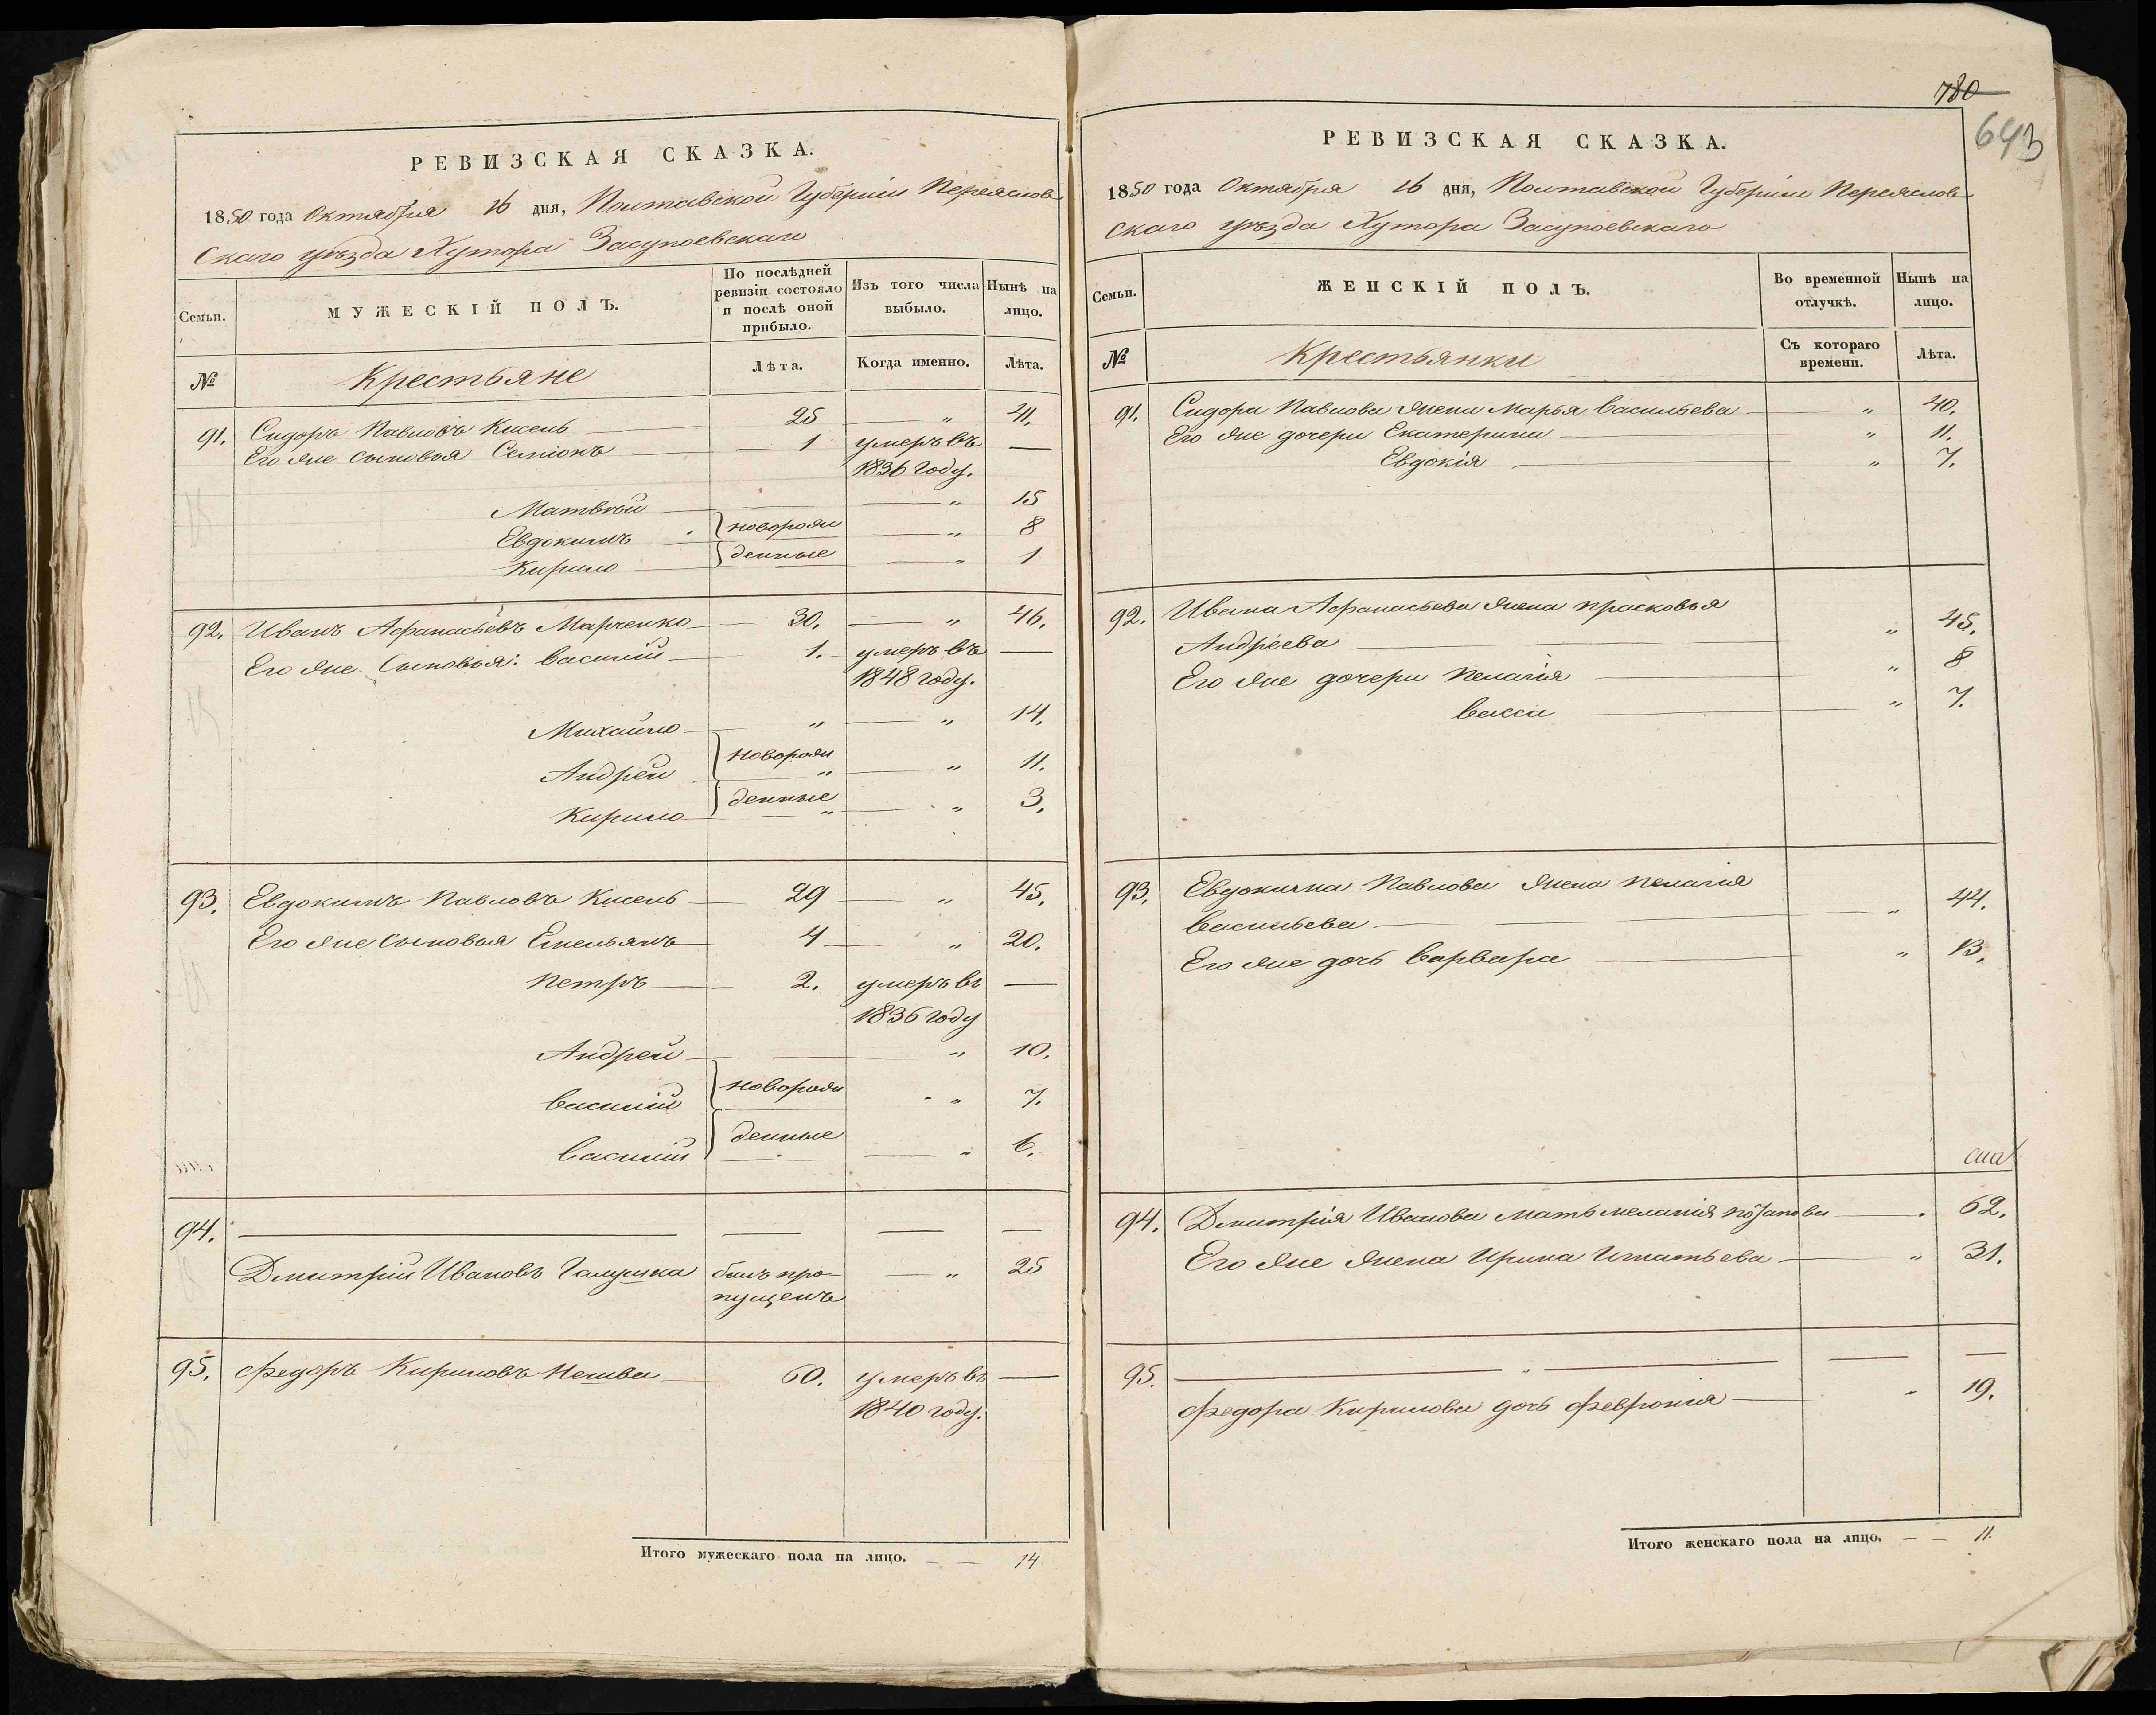 780
643
РЕВИЗСКАЯ СКАЗКА.
1850 года Октября 16 дня, Полтавской Губерніи Переяслов-
скаго уѣзда Хутора Засупоевскаго
Семьи. МУЖЕСКІЙ ПОЛЪ. По послѣдней ревизіи состояло и послѣ оной прибыло. Изъ того числа выбыло. Нынѣ на лицо.
№ Крестьяне Лѣта. Когда именно. Лѣта.
91. Сидоръ Павловъ Кисель 25 " 41.
Его же сыновья Семіонъ 1 умеръ въ —
1836 году.
Матвѣй — " 15
Евдокимъ новорож " 8
Кирило денные " 1
92. Иванъ Афанасьевъ Марченко 30. " 46.
Его же Сыновья: Василій 1. умеръ въ —
1848 году.
Михайло " " 14.
Андрей новорож " " 11.
Кирило денные " " 3.
93. Евдокимъ Павловъ Кисель 29 " 45.
Его же Сыновья Емельянъ 4 " 20.
Петръ 2. умеръ въ —
1836 году
Андрей — " 10.
Василій новорож " 7.
Василій денные " 6.
94. — — — —
Дмитрій Ивановъ Галушка былъ про- " 25
пущенъ
95. Федоръ Кириловъ 60. умеръ въ —
1840 году.
Итого мужескаго пола на лицо. — — 14
РЕВИЗСКАЯ СКАЗКА.
1850 года Октября 16 дня, Полтавской Губерніи Переяслов-
скаго уѣзда Хутора Засупоевскаго
Семьи. ЖЕНСКІЙ ПОЛЪ. Во временной отлучкѣ. Нынѣ на лицо.
№ Крестьянки Съ котораго времени. Лѣта.
91. Сидора Павлова жена Марья Васильева " 40.
Его же дочери Екатерина " 11.
Евдокія " 7.
92. Ивана Афанасьева жена Прасковья
Андреева " 45.
Его же дочери Пелагія " 8
Васса " 7.
93. Евдокима Павлова жена Пелагія
Васильева " 44.
Его же дочь Варвара " 13.
94. Дмитрія Иванова мать Меланія 62.
Его же жена Ирина Игнатьева " 31.
95. — " — — —
Федора Кирилова дочь Февронія " 19.
Итого женскаго пола на лицо. — — 11.